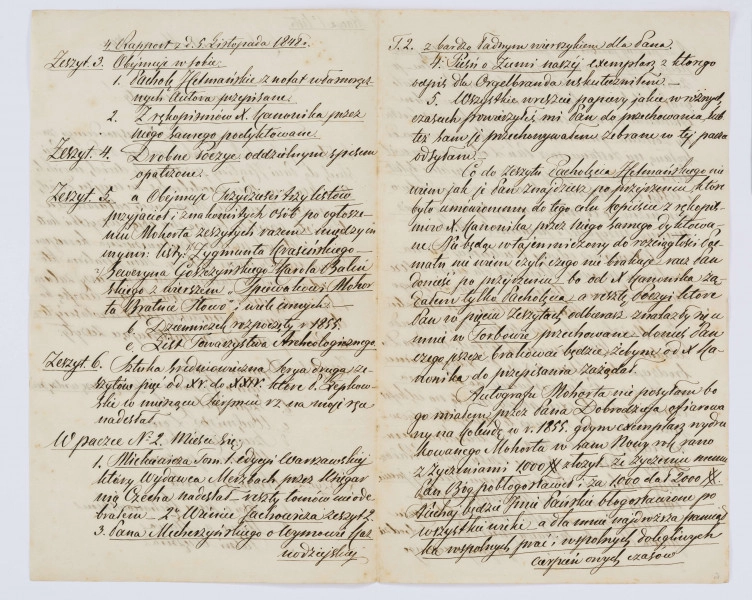 4. Rapport z d. 5. Listopada 1848 r.
Zeszyt. 3. Obejmuje w sobie
1. Pacholę Hetmańskie z notat własnoręcz
nych Autora przepisane.
2. Z rękopismów X. Kanonika przez
niego samego podyktowane.
Zeszyt. 4. Drobne Poezye oddzielnym spisem
opatrzone.
Zeszyt. 5. a Obejmuje Trzydzieści trzy listów
przyjaciół i znakomitych osób po ogłosze
niu Mohorta zeszytych razem między in
nymi: listy: Zygmunta Krasińskiego
Seweryna Goszczyńskiego Karola Baliń
skiego z wierszem „Śpiewakowi Mohor
ta Bratnie Słowo" i wiele innych.
b. Dzienniczek rozpoczęty r 1855.
c. List Towarzystwa Archeologicznego
Zeszyt. 6. Sztuka średniowieczna Serya druga ze
szytów pięć od XX. do XXIV. które P. Przepkow
ski w miesiącu Sierpniu rz na moje ręce
nadesłał.
W paczce No 2. Mieści się:
1. Mickiewicza Tom. 1. edycyi Warszawskiej
który Wydawca Merzbach przez Księgar
nią Czecha nadesłał reszty tomów nie ode
brałem 2o Wacława zeszyt 2.
3. Pana Mecherzyńskiego o Wymowie Kaz
nodziejskiej
T. 2. z bardzo ładnym wierszykiem dla Pana.
4. Pieśń o Ziemi naszej exemplarz z którego
odpis dla Orgelbranda uskuteczniłem.
5. Wszystkie wreszcie papiery jakie w różnych
czasach powierzyłeś mi Pan do przechowania lub
też sam je przechowywałem zebrane w tej paczce
odsyłam.
Co do zeszytu Pacholęcia Hetmańskiego nie
wiem jak je Pan znajdziesz po przejrzeniu, które
było umówionem do tego celu kopiście z rękopis
mów X. Kanonika przez niego samego dyktowa
ne. Nie będąc wtajemniczony do rozciągłości Poe
matu nie wiem czyli czego nie brakuje racz Pan
donieść po przejrzeniu bo od X Kanonika żą
dałem tylko Pacholęcia a resztę Poezyi które
Pan w pięciu zeszytach odbierasz znalazły się u
mnie w Torbowie przechowane donieś Pan
czego jeszcze brakować będzie żebym od X Ka
nonika do przepisania zażądał.
Autografu Mohorta nie posyłam bo
go miałem przez Pana Dobrodzieja ofiarowa
ny na Kolendę w r. 1855. gdym exemplarz wydru
kowanego Mohorta w sam Nowy rok rano
z życzeniami 1000 # złożył. Te życzenia memu
Panu Bóg pobłogosławił i za 1000 dał 2000 #.
Niechaj będzie Imię Pańskie błogosławione po
wszystkie wieki a dla mnie najdroższa pamiąt
ka wspólnych prac i wspólnych dolegliwych
cierpień owych czasów